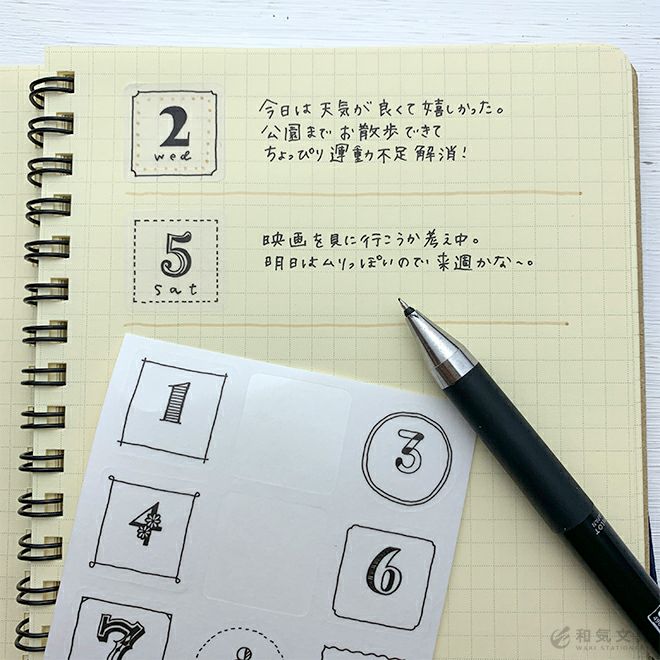 2
wed
今日は天気が良くて嬉しかった。
公園までお散歩できて
ちょっぴり運動不足解消!
5
sat
映画を見に行こうか考え中。
明日はムリっぽいので来週かな～。
1
3
4
6
7
和気文
WAKI STATIONE